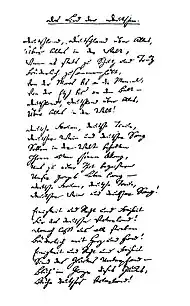 Das Lied der Deutschen.
Deutschland, Deutschland über Alles,
Über Alles in der Welt,
Wenn es stets zu Schutz und Trutz
Brüderlich zusammenhält,
Von der Maas bis an die Memel,
Von der Etsch bis an den Belt –
Deutschland, Deutschland über Alles,
Über Alles in der Welt!
Deutsche Frauen, deutsche Treue,
Deutscher Wein und deutscher Sang
Sollen in der Welt behalten
Ihren alten schönen Klang,
Uns zu edler That begeistern
Unser ganzes Leben lang –
Deutsche Frauen, deutsche Treue,
Deutscher Wein und deutscher Sang!
Einigkeit und Recht und Freiheit
Für das deutsche Vaterland!
Danach laßt uns alle streben
Brüderlich mit Herz und Hand!
Einigkeit und Recht und Freiheit
Sind des Glückes Unterpfand –
Blüh im Glanze dieses Glückes,
Blühe deutsches Vaterland!